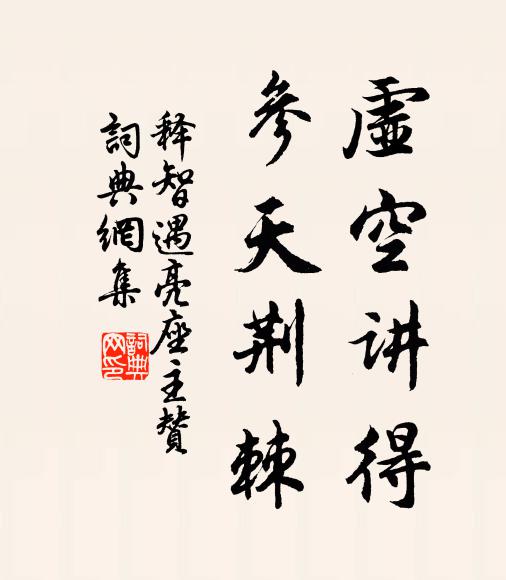 虛空讲得
參天荆棘
释智遇亮座主贊
詞典網集
詞典
网印